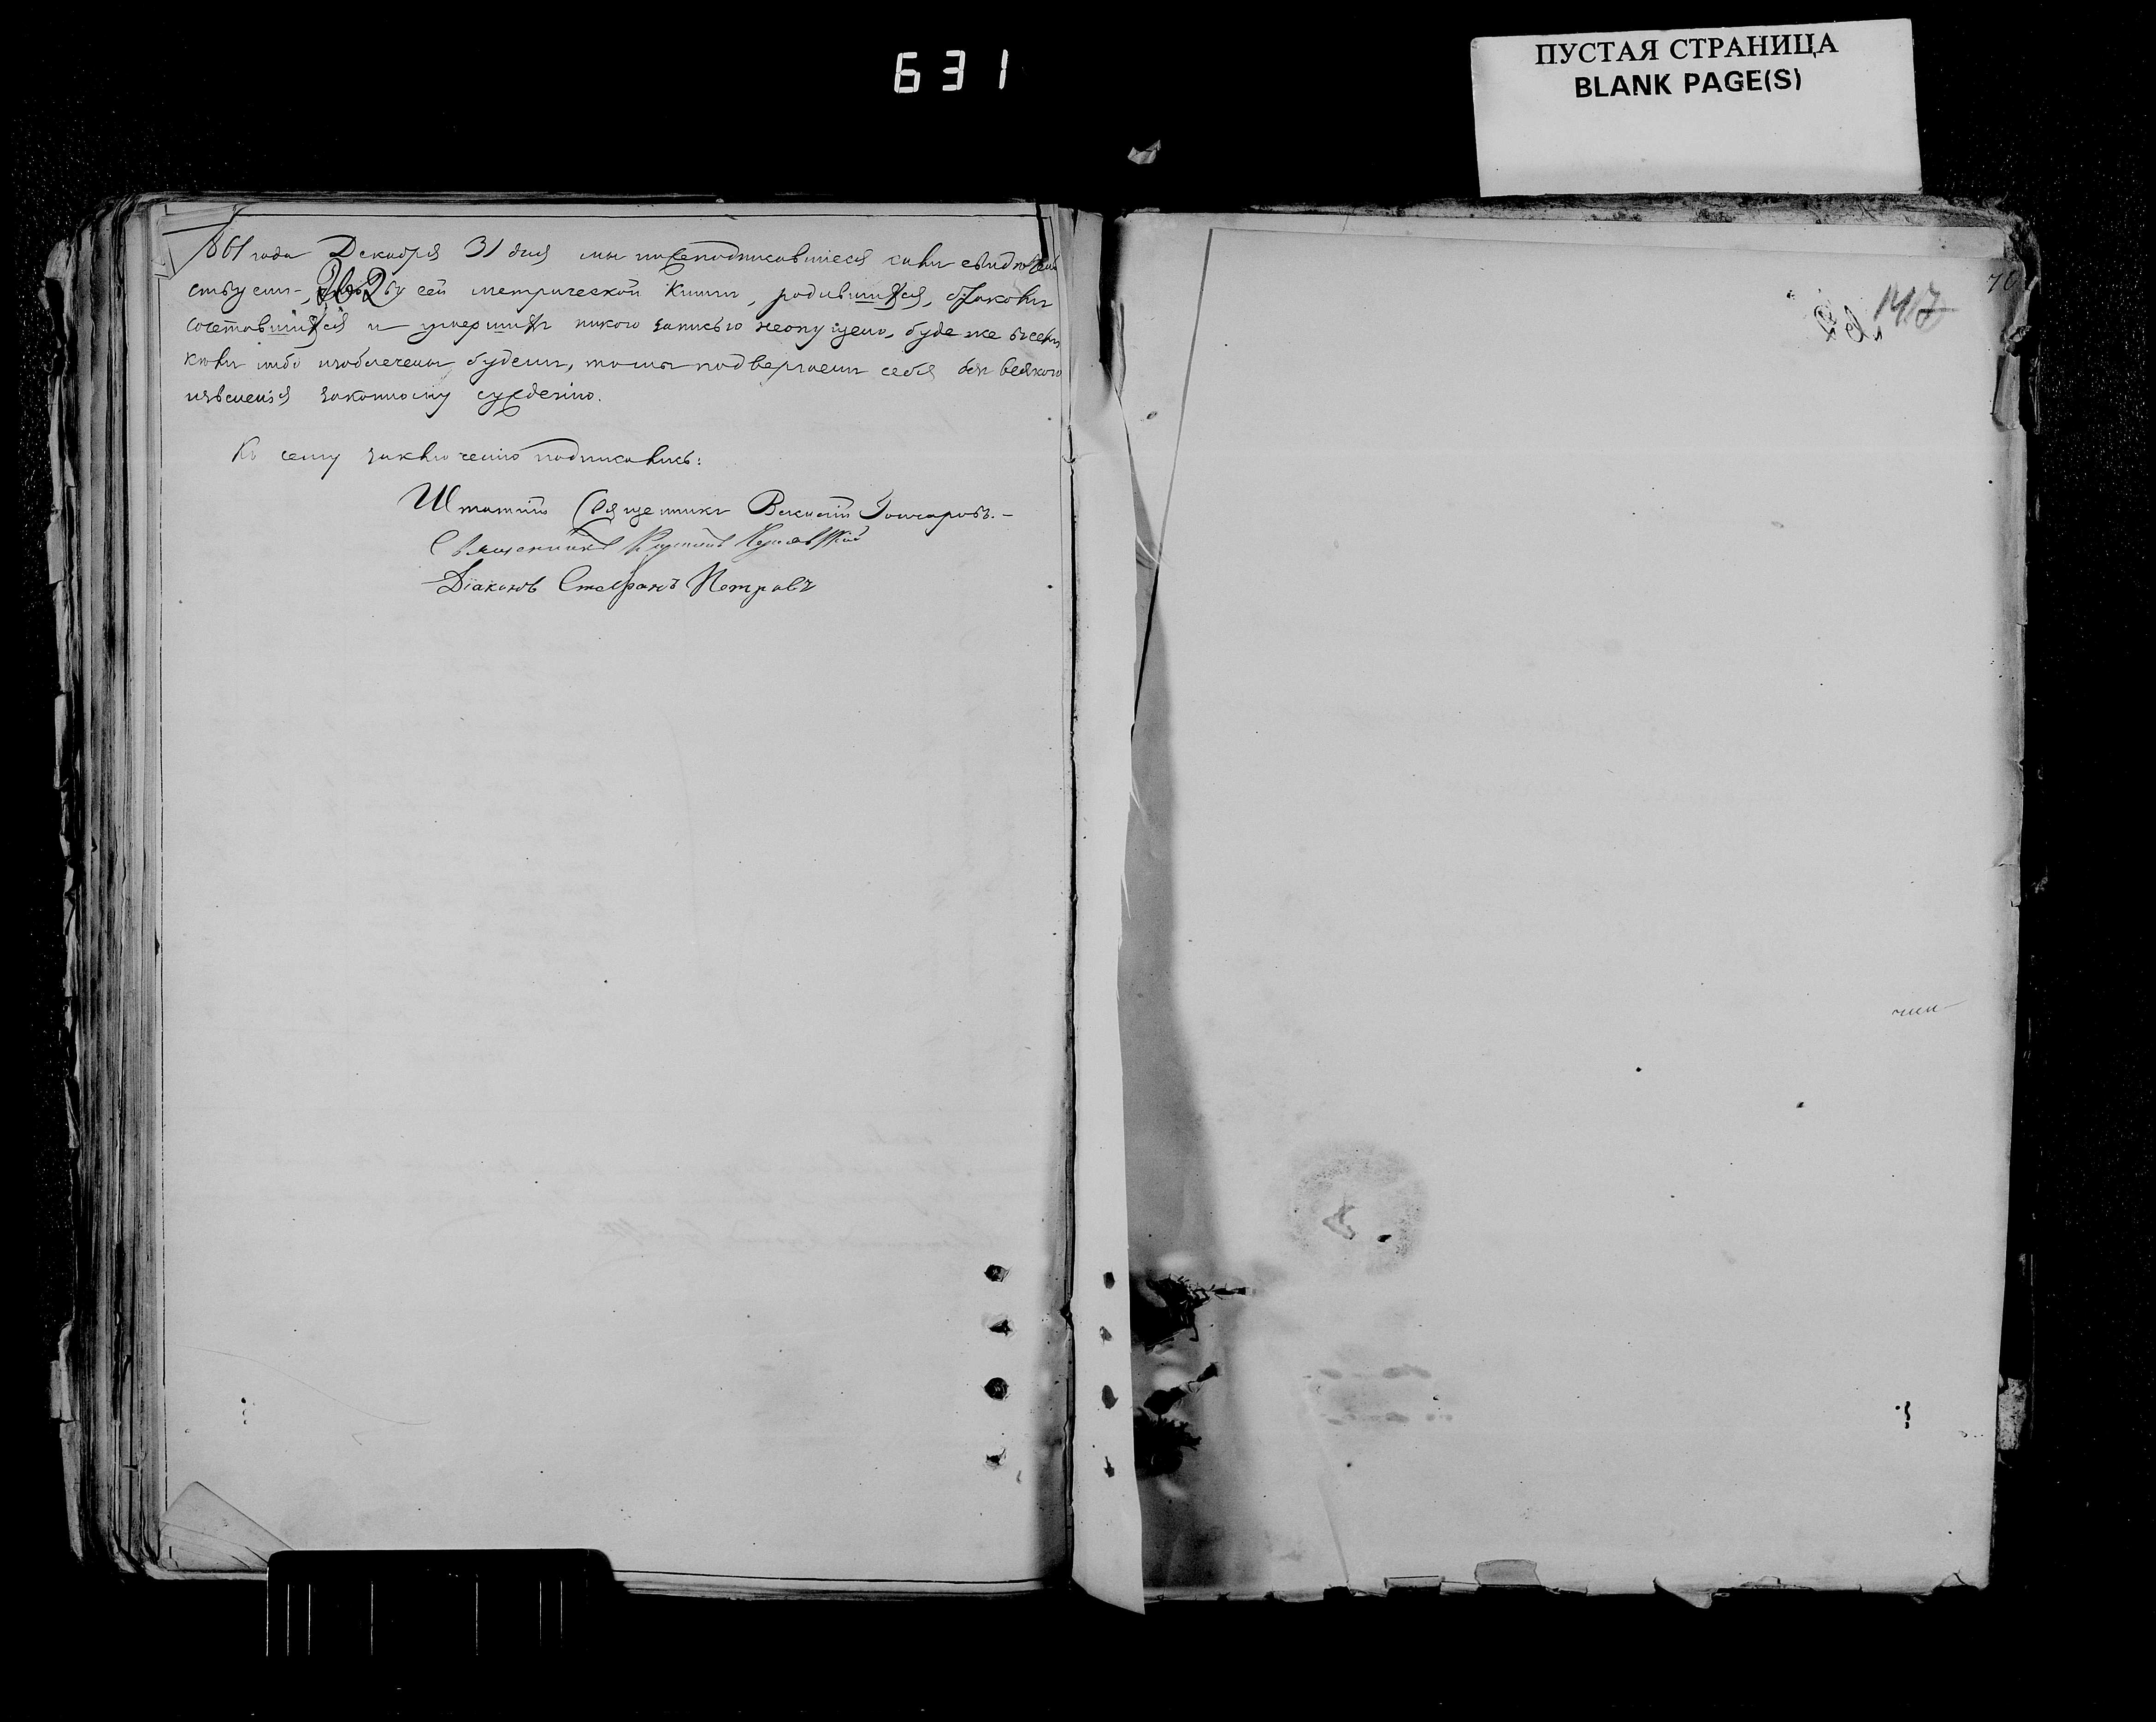 631
ПУСТАЯ СТРАНИЦА
BLANK PAGE(S)
1861 года Декабря 31 дня мы нижеподписавшіеся симъ свидѣтель
ствуемъ, что въ сей метрической книги, родившихся, бракомъ
202
сочетавшихся и умершихъ никого записью неопущено, буде же въ семъ
изобличены будемъ, то мы подвергаемъ себя безъ всякого
законному сужденію.
Къ сему заключенію подписались:
Штатный Священникъ Василій Гончаровъ.
Священникъ
Діаконъ Стефанъ Петровъ
147
70